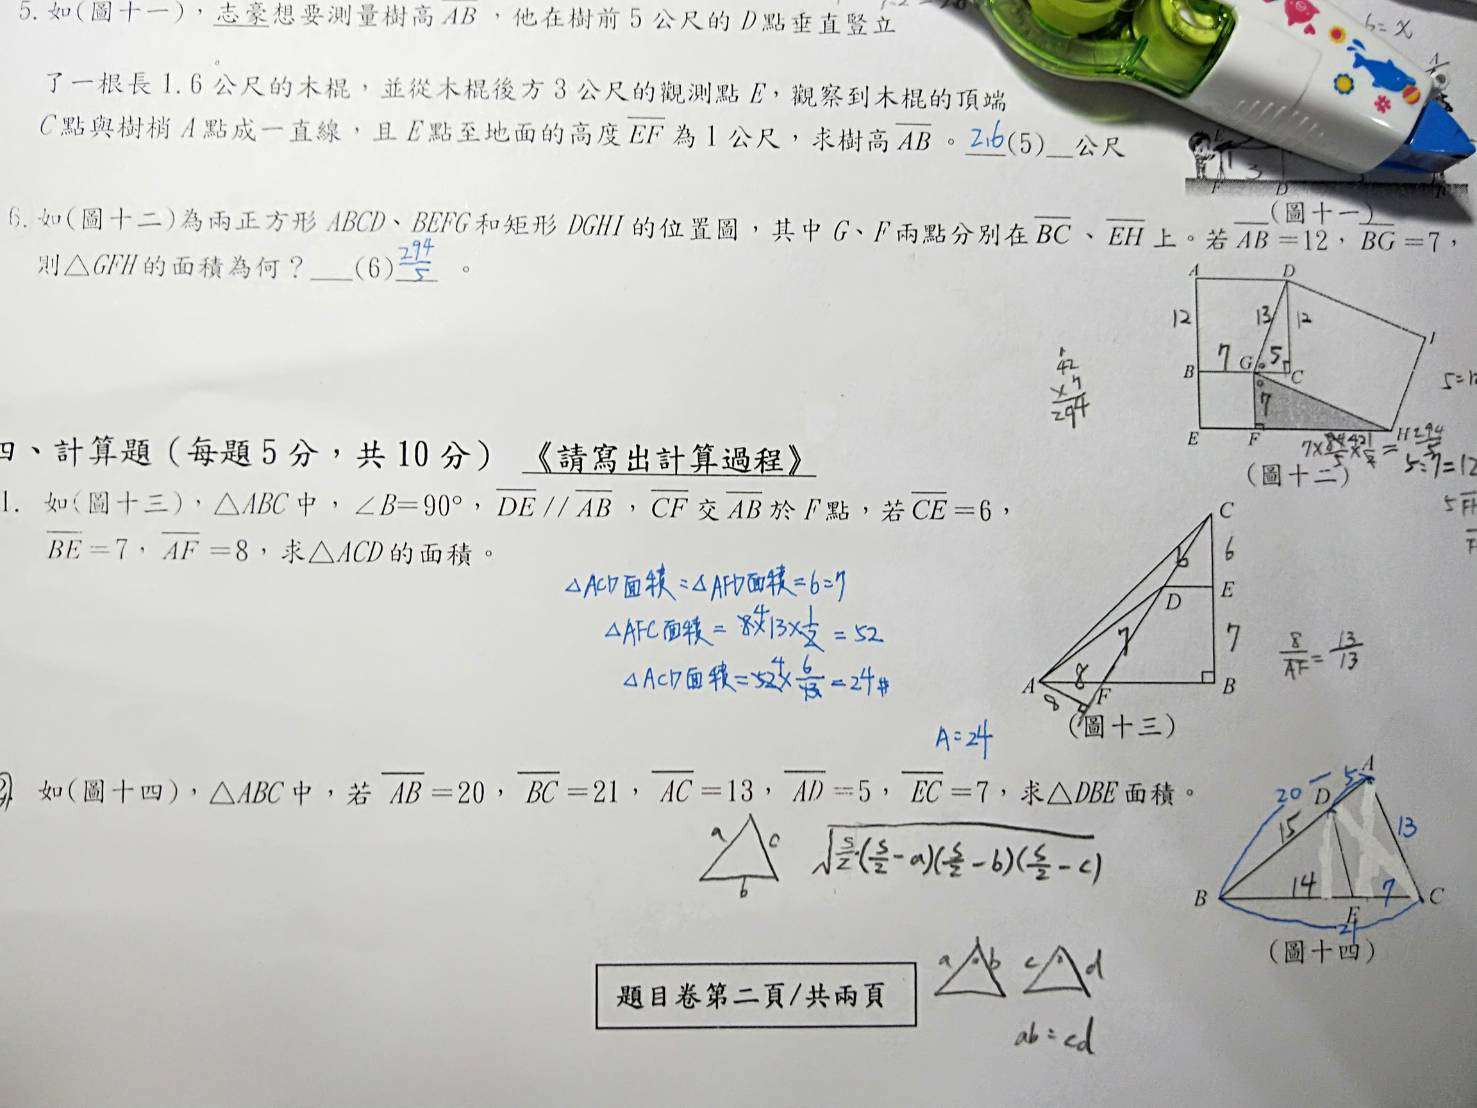 5. 如(圖十一)，志豪想要測量樹高 AB ，他在樹前 5 公尺的 D 點垂直豎立
了一根長 1.6 公尺的木棍，並從木棍後方 3 公尺的觀測點 E，觀察到木棍的頂端
C 點與樹梢 A 點成一直線，且 E 點至地面的高度 EF 為 1 公尺，求樹高 AB 。2.6(5) 公尺
b=x
3
F
D
(圖十一)
6. 如(圖十二)為兩正方形 ABCD、BEFG 和矩形 DGHI 的位置圖，其中 G、F 兩點分別在 BC 、EH 上。若 AB =12，BG =7，
則△GFH 的面積為何？ (6) 294/5 。
A
D
12
13
12
I
B
7
G
5
C
7
E
F
H
(圖十二)
42
×7
294
5:7=12
四、計算題（每題 5 分，共 10 分） 《請寫出計算過程》
1. 如(圖十三)，△ABC 中，∠B=90°，DE // AB ，CF 交 AB 於 F 點，若 CE =6，
BE =7，AF =8，求△ACD 的面積。
△ACD面積:△AFD面積=6:7
△AFC面積= 8×13×1/2 = 52
△ACD面積=52×6/13=24#
A=24
C
6
6
E
D
7
7
A
8
F
B
8
(圖十三)
8/AF=13/13
2. 如(圖十四)，△ABC 中，若 AB =20，BC =21，AC =13，AD =5，EC =7，求△DBE 面積。
a
c
b
√s/2·(s/2-a)(s/2-b)(s/2-c)
A
20
5
D
15
13
B
14
E
7
C
21
(圖十四)
題目卷第二頁/共兩頁
a
b
c
d
ab:cd